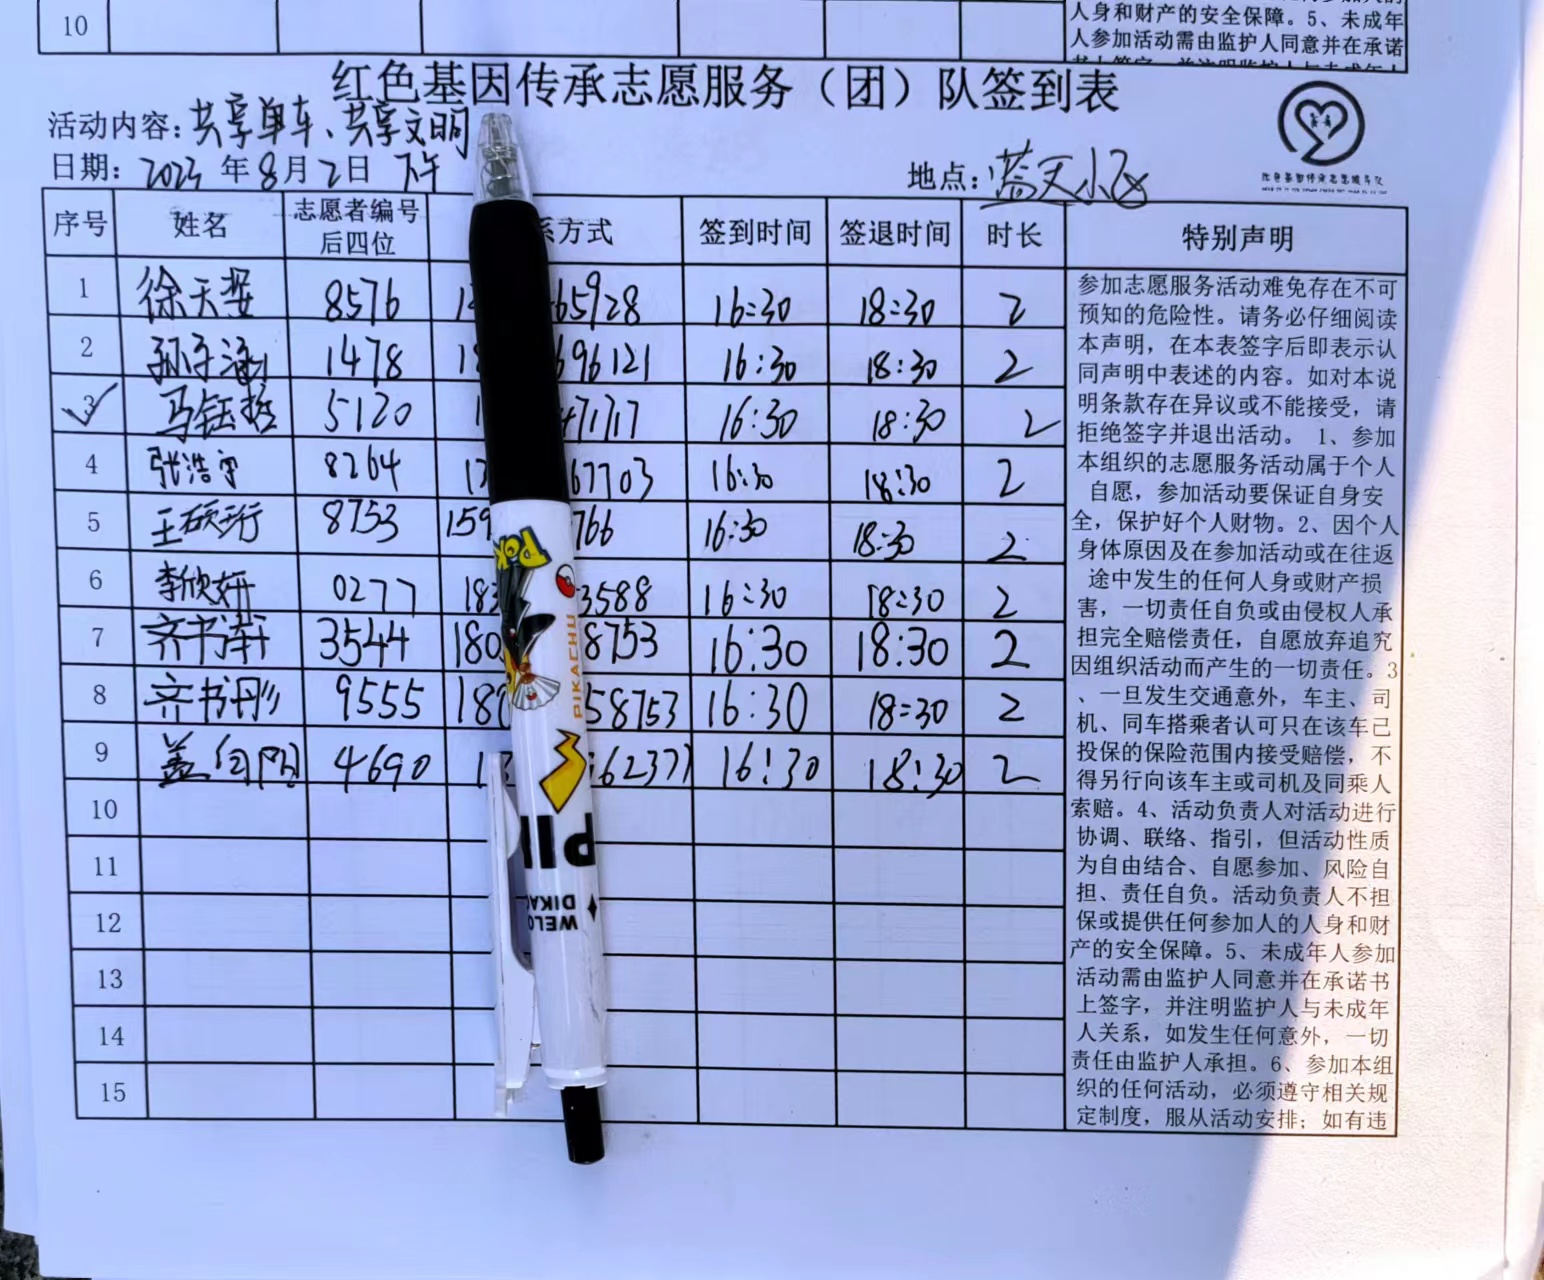 10
人身和财产的安全保障。5、未成年
人参加活动需由监护人同意并在承诺
红色基因传承志愿服务（团）队签到表
活动内容：共享单车、共享文明
日期：2023年8月2日 下午
地点：蓝天小区
序号 姓名 志愿者编号后四位 系方式 签到时间 签退时间 时长 特别声明
1 徐天 8576 65928 16:30 18:30 2
2 孙子涵 1478 696121 16:30 18:30 2
3 马钰哲 5120 471717 16:30 18:30 2
4 张浩宇 8264 13 67703 16:30 18:30 2
5 王硕珩 8753 159 766 16:30 18:30 2
6 李欣妍 0277 183 3588 16:30 18:30 2
7 齐书萍 3544 180 8753 16:30 18:30 2
8 齐书彤 9555 180 58753 16:30 18:30 2
9 盖 4690 62371 16:30 18:30 2
10
11
12
13
14
15
参加志愿服务活动难免存在不可
预知的危险性。请务必仔细阅读
本声明，在本表签字后即表示认
同声明中表述的内容。如对本说
明条款存在异议或不能接受，请
拒绝签字并退出活动。 1、参加
本组织的志愿服务活动属于个人
自愿，参加活动要保证自身安
全，保护好个人财物。2、因个人
身体原因及在参加活动或在往返
途中发生的任何人身或财产损
害，一切责任自负或由侵权人承
担完全赔偿责任，自愿放弃追究
因组织活动而产生的一切责任。3
、一旦发生交通意外，车主、司
机、同车搭乘者认可只在该车已
投保的保险范围内接受赔偿，不
得另行向该车主或司机及同乘人
索赔。4、活动负责人对活动进行
协调、联络、指引，但活动性质
为自由结合、自愿参加、风险自
担、责任自负。活动负责人不担
保或提供任何参加人的人身和财
产的安全保障。5、未成年人参加
活动需由监护人同意并在承诺书
上签字，并注明监护人与未成年
人关系，如发生任何意外，一切
责任由监护人承担。6、参加本组
织的任何活动，必须遵守相关规
定制度，服从活动安排；如有违
PIKACHU